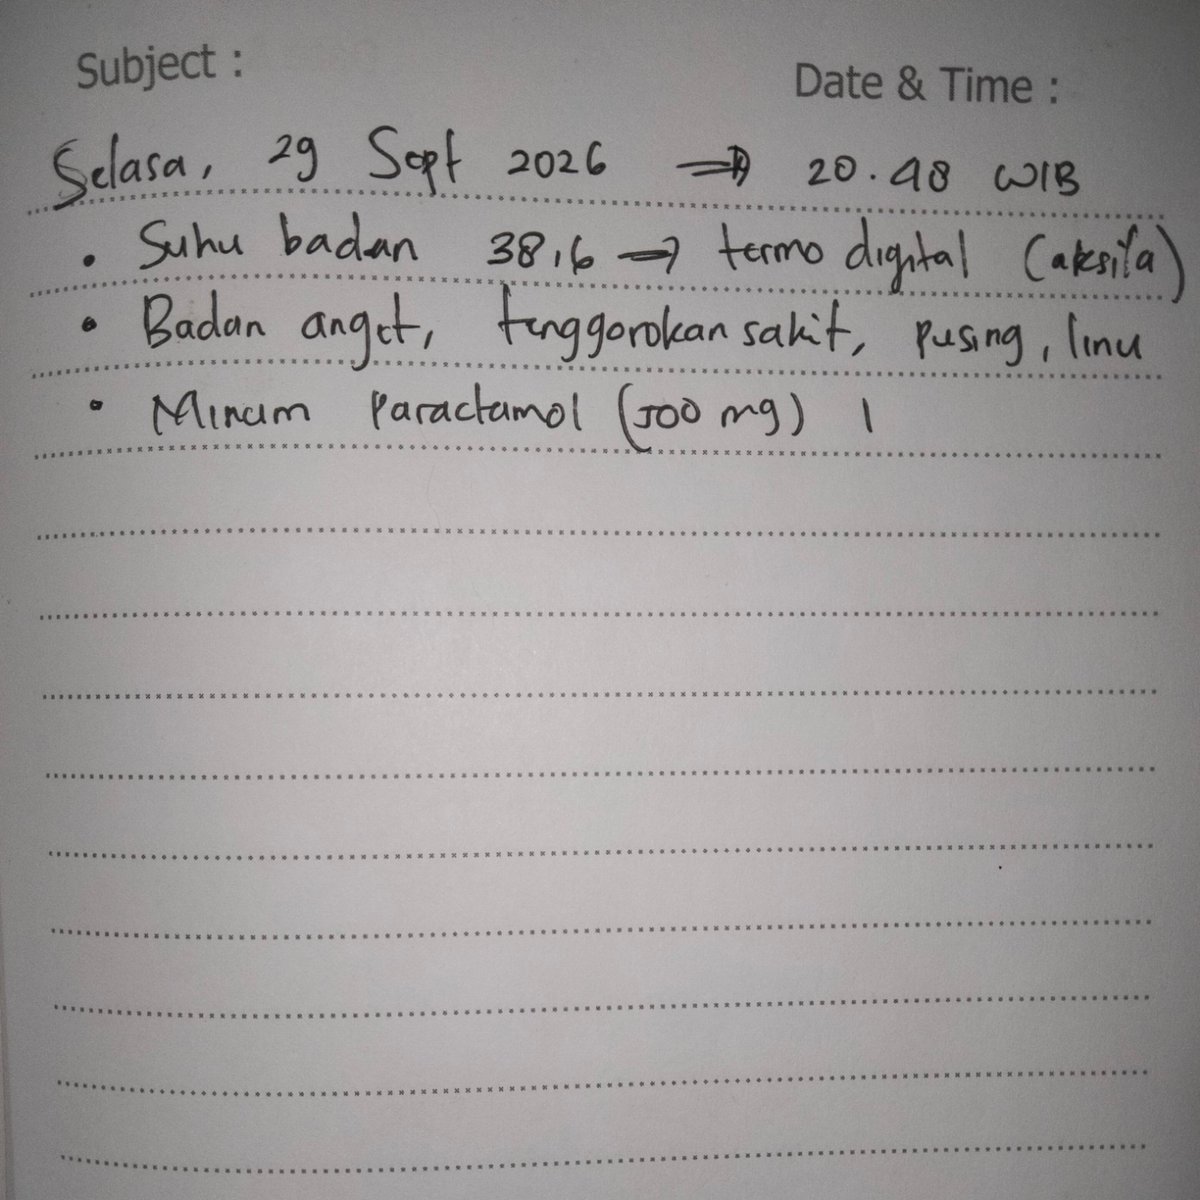 Subject :
Date & Time :
Selasa, 29 Sept 2026 ⇒ 20.48 WIB
• Suhu badan 38,6 → termo digital (aksila)
• Badan anget, tenggorokan sakit, pusing, linu
• Minum Paractamol (500 mg) 1